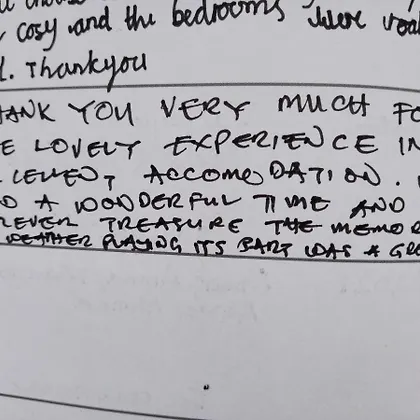 cosy and the bedrooms were
. Thankyou
HANK YOU VERY MUCH FO
E LOVELY EXPERIENCE IN
CELLENT ACCOMODATION.
D A WONDERFUL TIME AND
REVER TREASURE THE MEMOR
WEATHER PLAYING ITS PART WAS A GRE